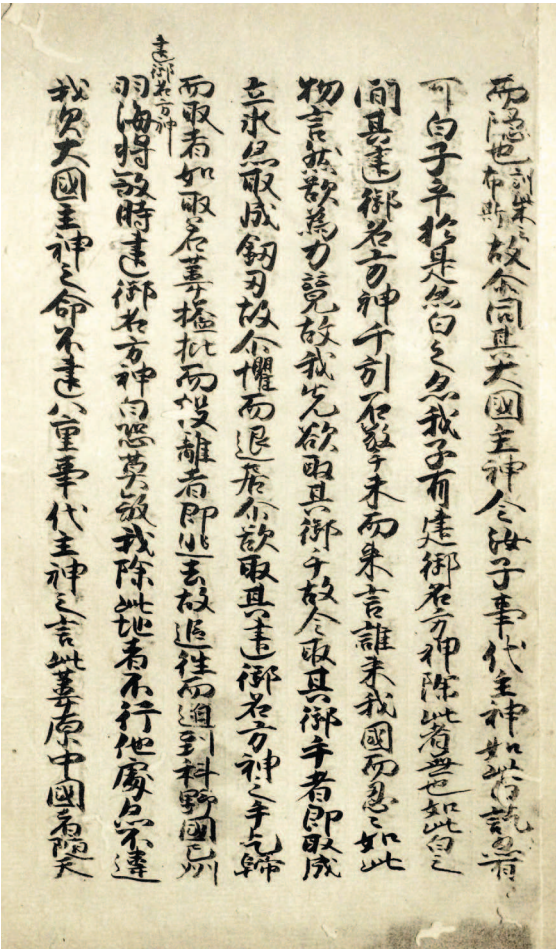 而隱也訓柴云布斯故尒問其大國主神今汝子事代主神如此白訖亦有
可白子乎於是亦白之亦我子有建御名方神除此者無也如此白之
間其建御名方神千引石擎手末而來言誰來我國而忍々如此
物言然欲為力競故我先欲取其御手故令取其御手者即取成
立氷亦取成釼刃故尒懼而退居尒欲取其建御名方神之手乞歸
而取者如取若葦搤批而投離者即逃去故追往而迫到科野國之州
建御名方神
羽海將殺時建御名方神白恐莫殺我除此地者不行他處亦不違
我父大國主神之命不違八重事代主神之言此葦原中國者隨天